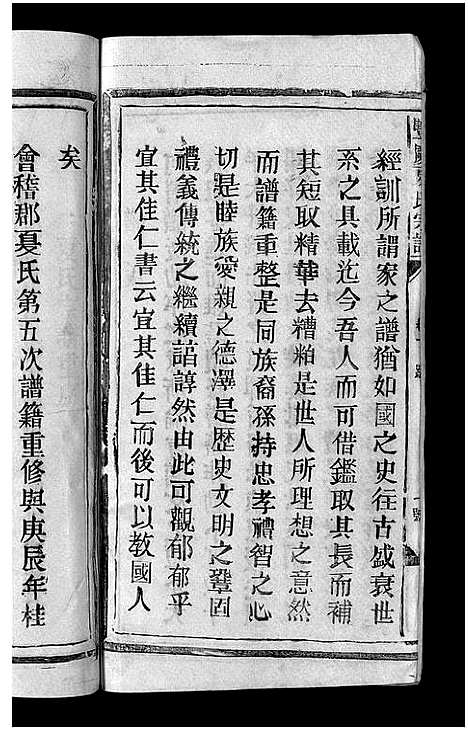 經訓所謂家之譜猶如國之史往古盛衰世
系之具載迄今吾人而可借鑑取其長而補
其短取精華去糟粕是世人所理想之意然
而譜籍重整是同族裔孫持忠孝禮智之心
切是睦族愛親之德澤是歷史文明之鞏固
禮義傳統之繼續諳諄然由此可觀郁郁乎
宜其佳仁書云宜其佳仁而後可以教國人
矣
會稽郡夏氏第五次譜籍重修與庚辰年桂